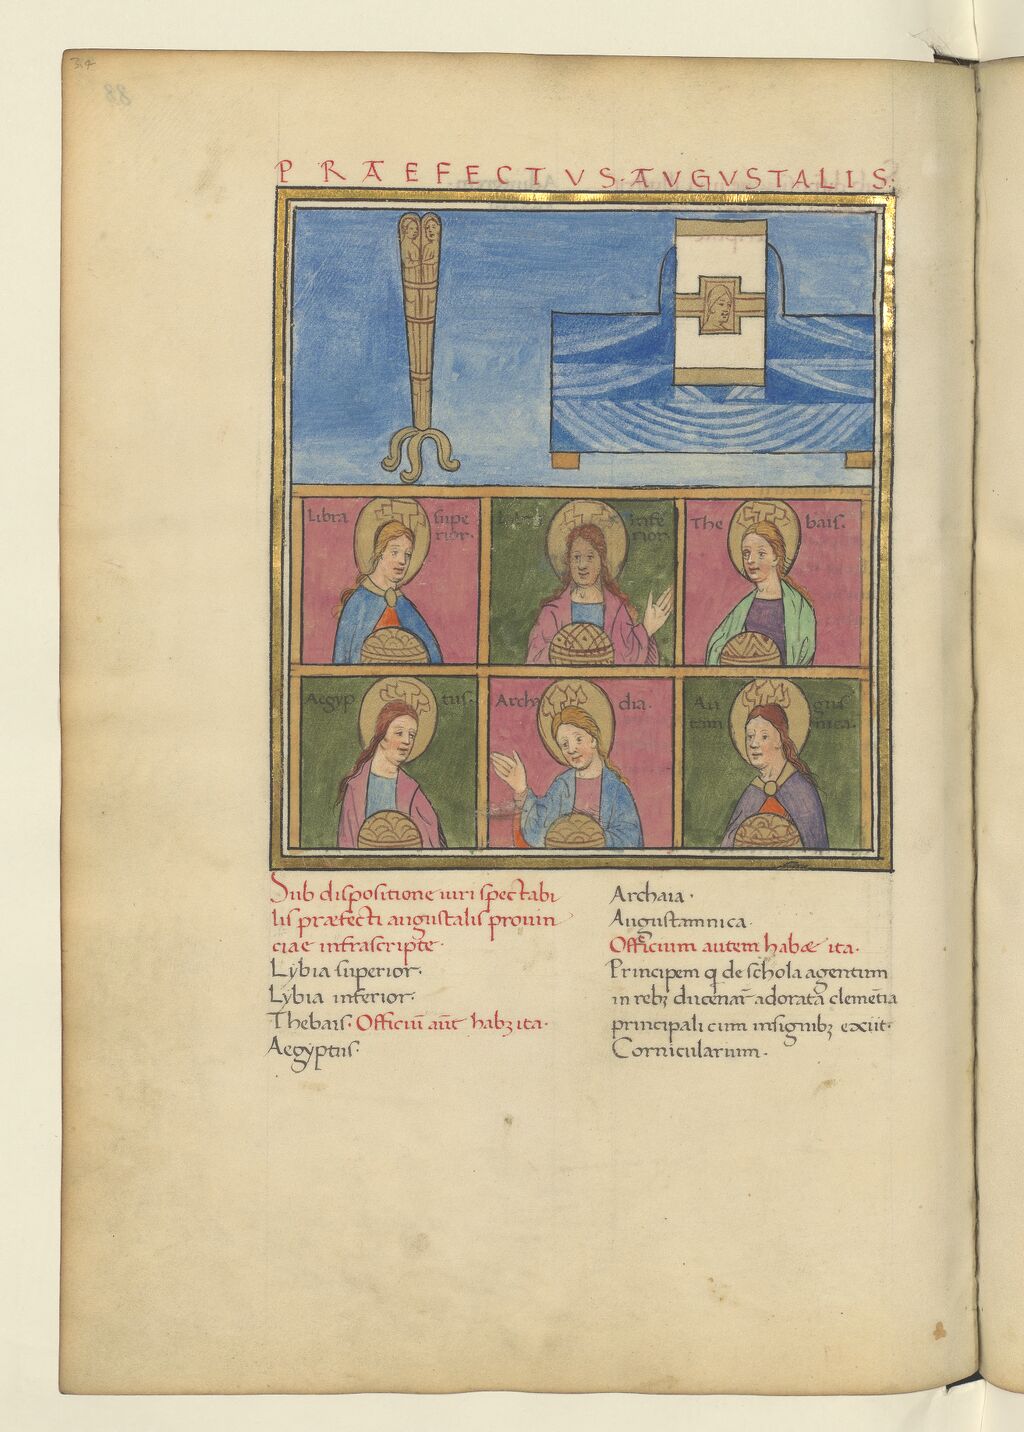 314
88
PRAEFECTVS·AVGVSTALIS·
Libia supe
rior·
infe
rior
The bais·
Aegyp tus·
Archa dia·
Au gus
tam nica·
Sub dispositione uiri spectabi
lis præfecti augustalis prouin
ciae infrascripte·
Lybia superior·
Lybia inferior·
Thebais· Officiū aūt habꝫ ita·
Aegyptus·
Archaia·
Augustamnica·
Officium autem habæ ita·
Principem q̄ de schola agentum
in rebꝫ ducenar̄ adorata clemētia
principali cum insignibꝫ exiit·
Cornicularium·